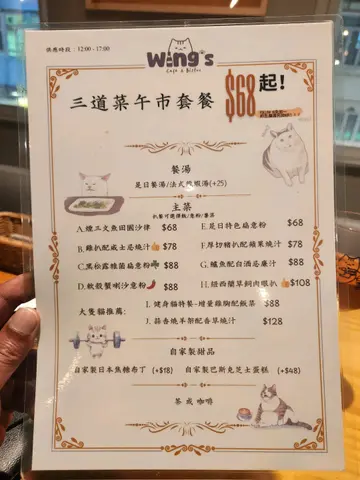 供應時段：12:00 - 17:00
Wing's
Cafe & Bistro
三道菜午市套餐 $68起!
餐湯
是日餐湯/法式龍蝦湯(+25)
主菜
扒餐可選薄飯/意粉/薯菜
A.煙三文魚田園沙律 $68
E.是日特色扁意粉 $68
B.雞扒配威士忌燒汁 $78
F.厚切豬扒配蘋果燒汁 $78
C.黑松露雜菌扁意粉 $88
G.鱸魚配白酒忌廉汁 $88
D.軟殼蟹喇沙意粉 $88
H.紐西蘭草飼肉眼扒 $108
大隻貓推薦：
I. 健身貓特餐-增量雞胸配飯菜 $88
J. 蒜香燒羊架配香草燒汁 $128
自家製甜品
自家製日本焦糖布丁 (+$18)
自家製巴斯克芝士蛋糕 (+$48)
茶 或 咖啡